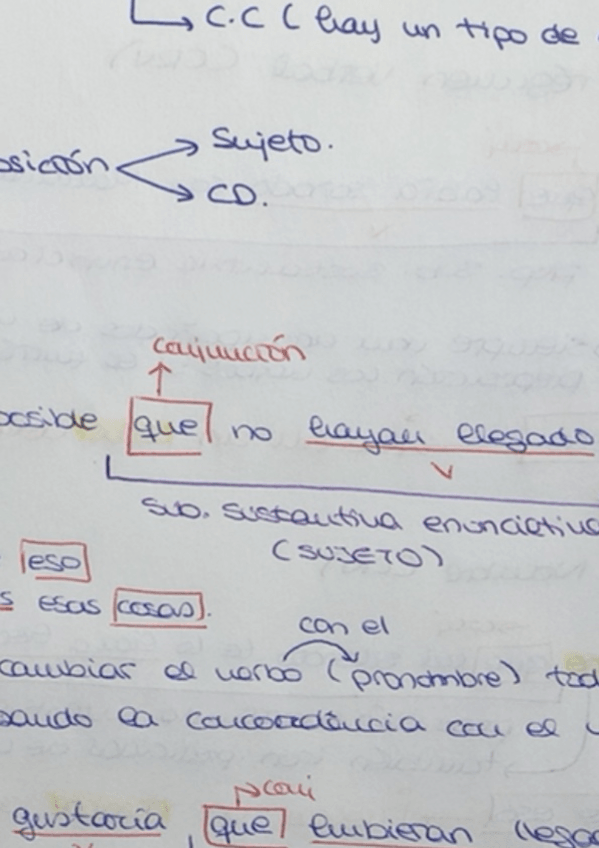 C.C (hay un tipo de
Sujeto.
osición
CD.
conjunción
posible que no hayan llegado
V
sub. sustantiva enunciativa
(SUJETO)
eso
s esas cosas.
con el
cambiar el verbo (pronombre) tod
sando la concordancia con el v
conj
gustaría, que hubieran llega